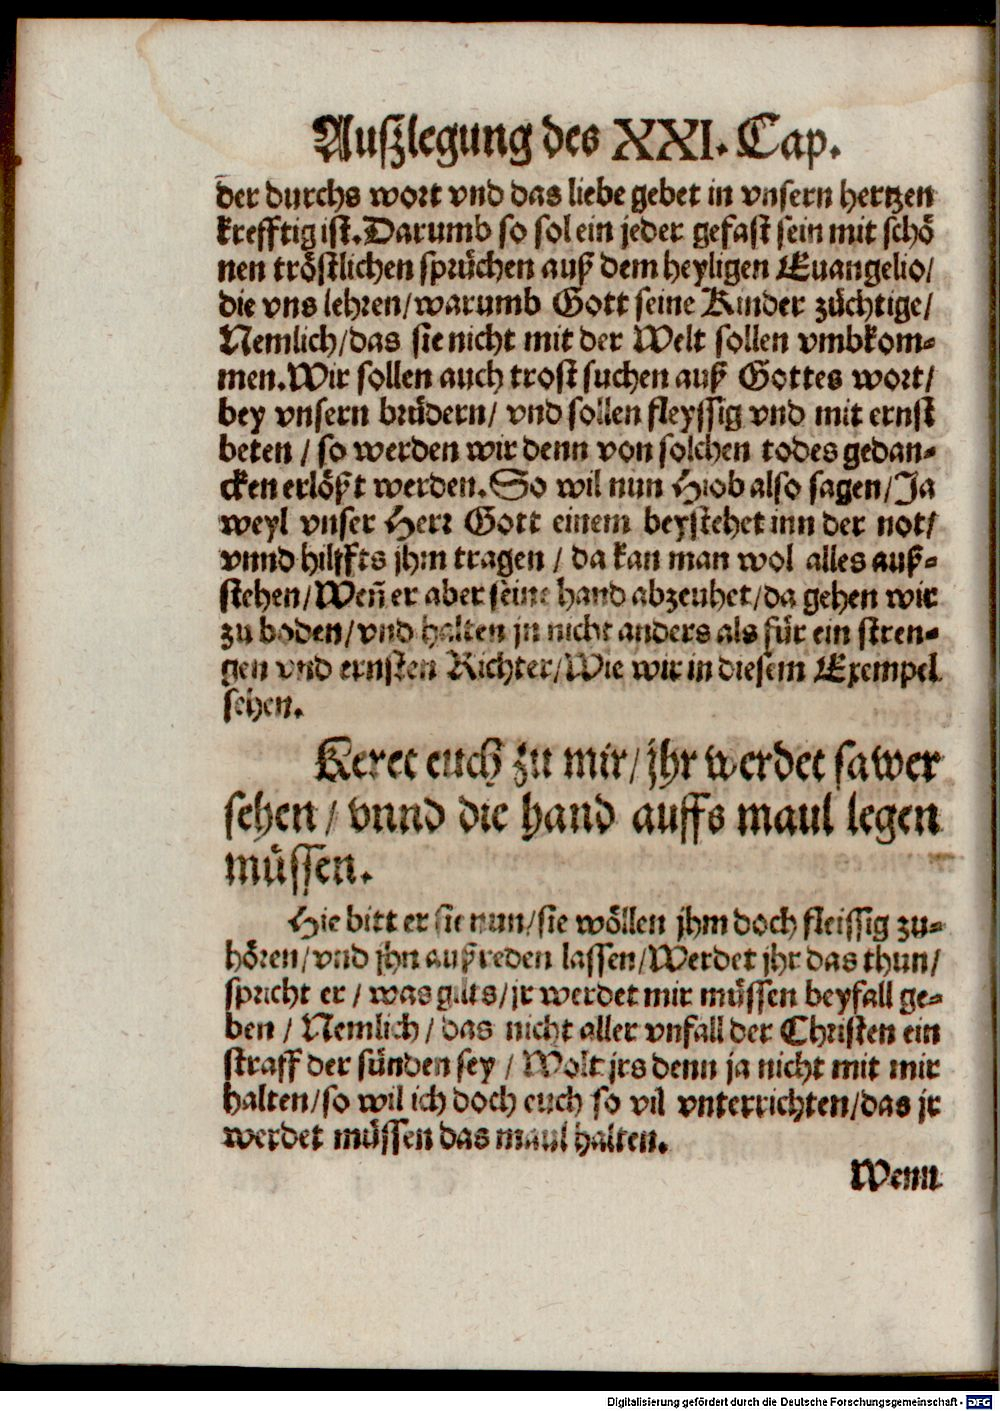 Außlegung des XXI. Cap.
der durchs wort vnd das liebe gebet in vnsern hertzen
krefftig ist. Darumb so sol ein jeder gefast sein mit schö
nen tröstlichen sprüchen auß dem heyligen Euangelio/
die vns lehren/warumb Gott seine Kinder züchtige/
Nemlich/das sie nicht mit der Welt sollen vmbkom-
men. Wir sollen auch trost suchen auß Gottes wort/
bey vnsern brüdern/ vnd sollen fleyssig vnd mit ernst
beten / so werden wir denn von solchen todes gedan-
cken erlößt werden. So wil nun Hiob also sagen/Ja
weyl vnser Herr Gott einem beystehet inn der not/
vnnd hilffts jhm tragen / da kan man wol alles auß-
stehen/Weñ er aber seine hand abzeuhet/da gehen wir
zu boden/vnd halten jn nicht anders als für ein stren-
gen vnd ernsten Richter/Wie wir in diesem Exempel
sehen.
Keret euch zu mir/jhr werdet sawer
sehen / vnnd die hand auffs maul legen
müssen.
Hie bitt er sie nun/sie wöllen jhm doch fleissig zu-
hören/vnd jhn außreden lassen/Werdet jhr das thun/
spricht er / was gilts/jr werdet mir müssen beyfall ge-
ben / Nemlich / das nicht aller vnfall der Christen ein
straff der sünden sey / Wolt jrs denn ja nicht mit mir
halten/so wil ich doch euch so vil vnterrichten/das jr
werdet müssen das maul halten.
Wenn
Digitalisierung gefördert durch die Deutsche Forschungsgemeinschaft - DFG